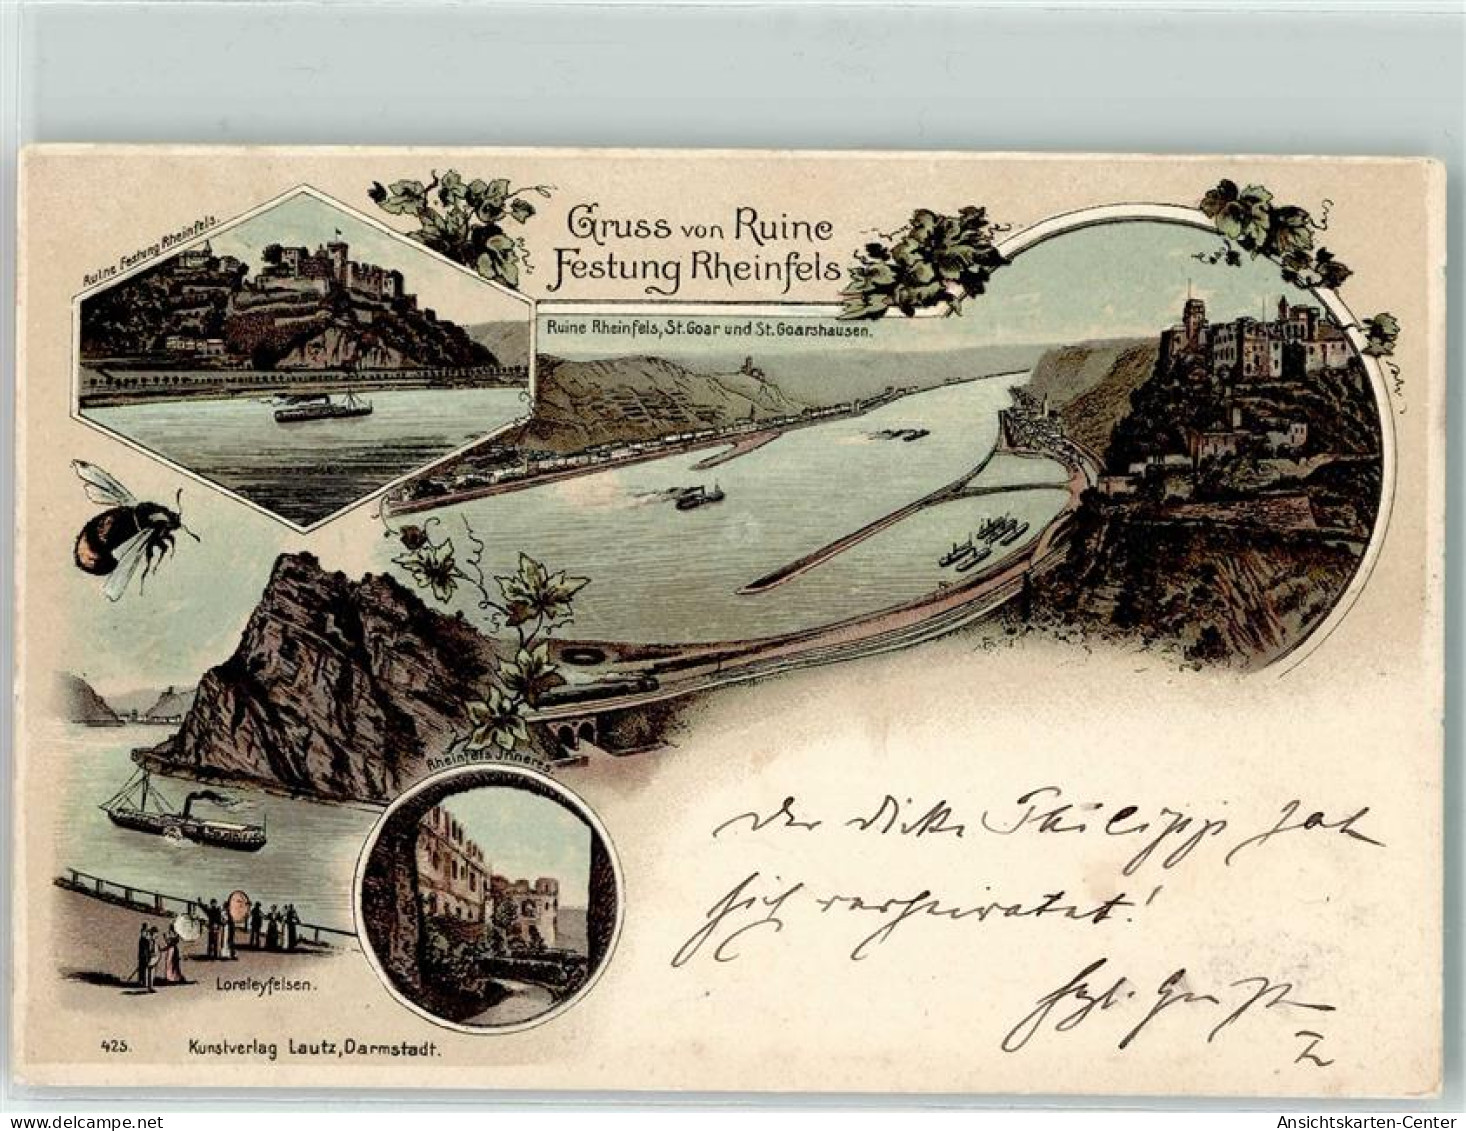 Ruine Festung Rheinfels.
Gruss von Ruine
Festung Rheinfels
Ruine Rheinfels, St. Goar und St. Goarshausen.
Rheinfels Jnneres.
Loreleyfelsen.
425. Kunstverlag Lautz, Darmstadt.
Der dicke Philipp hat
sich verheiratet!
Hzl. Gruß
Ansichtskarten-Center